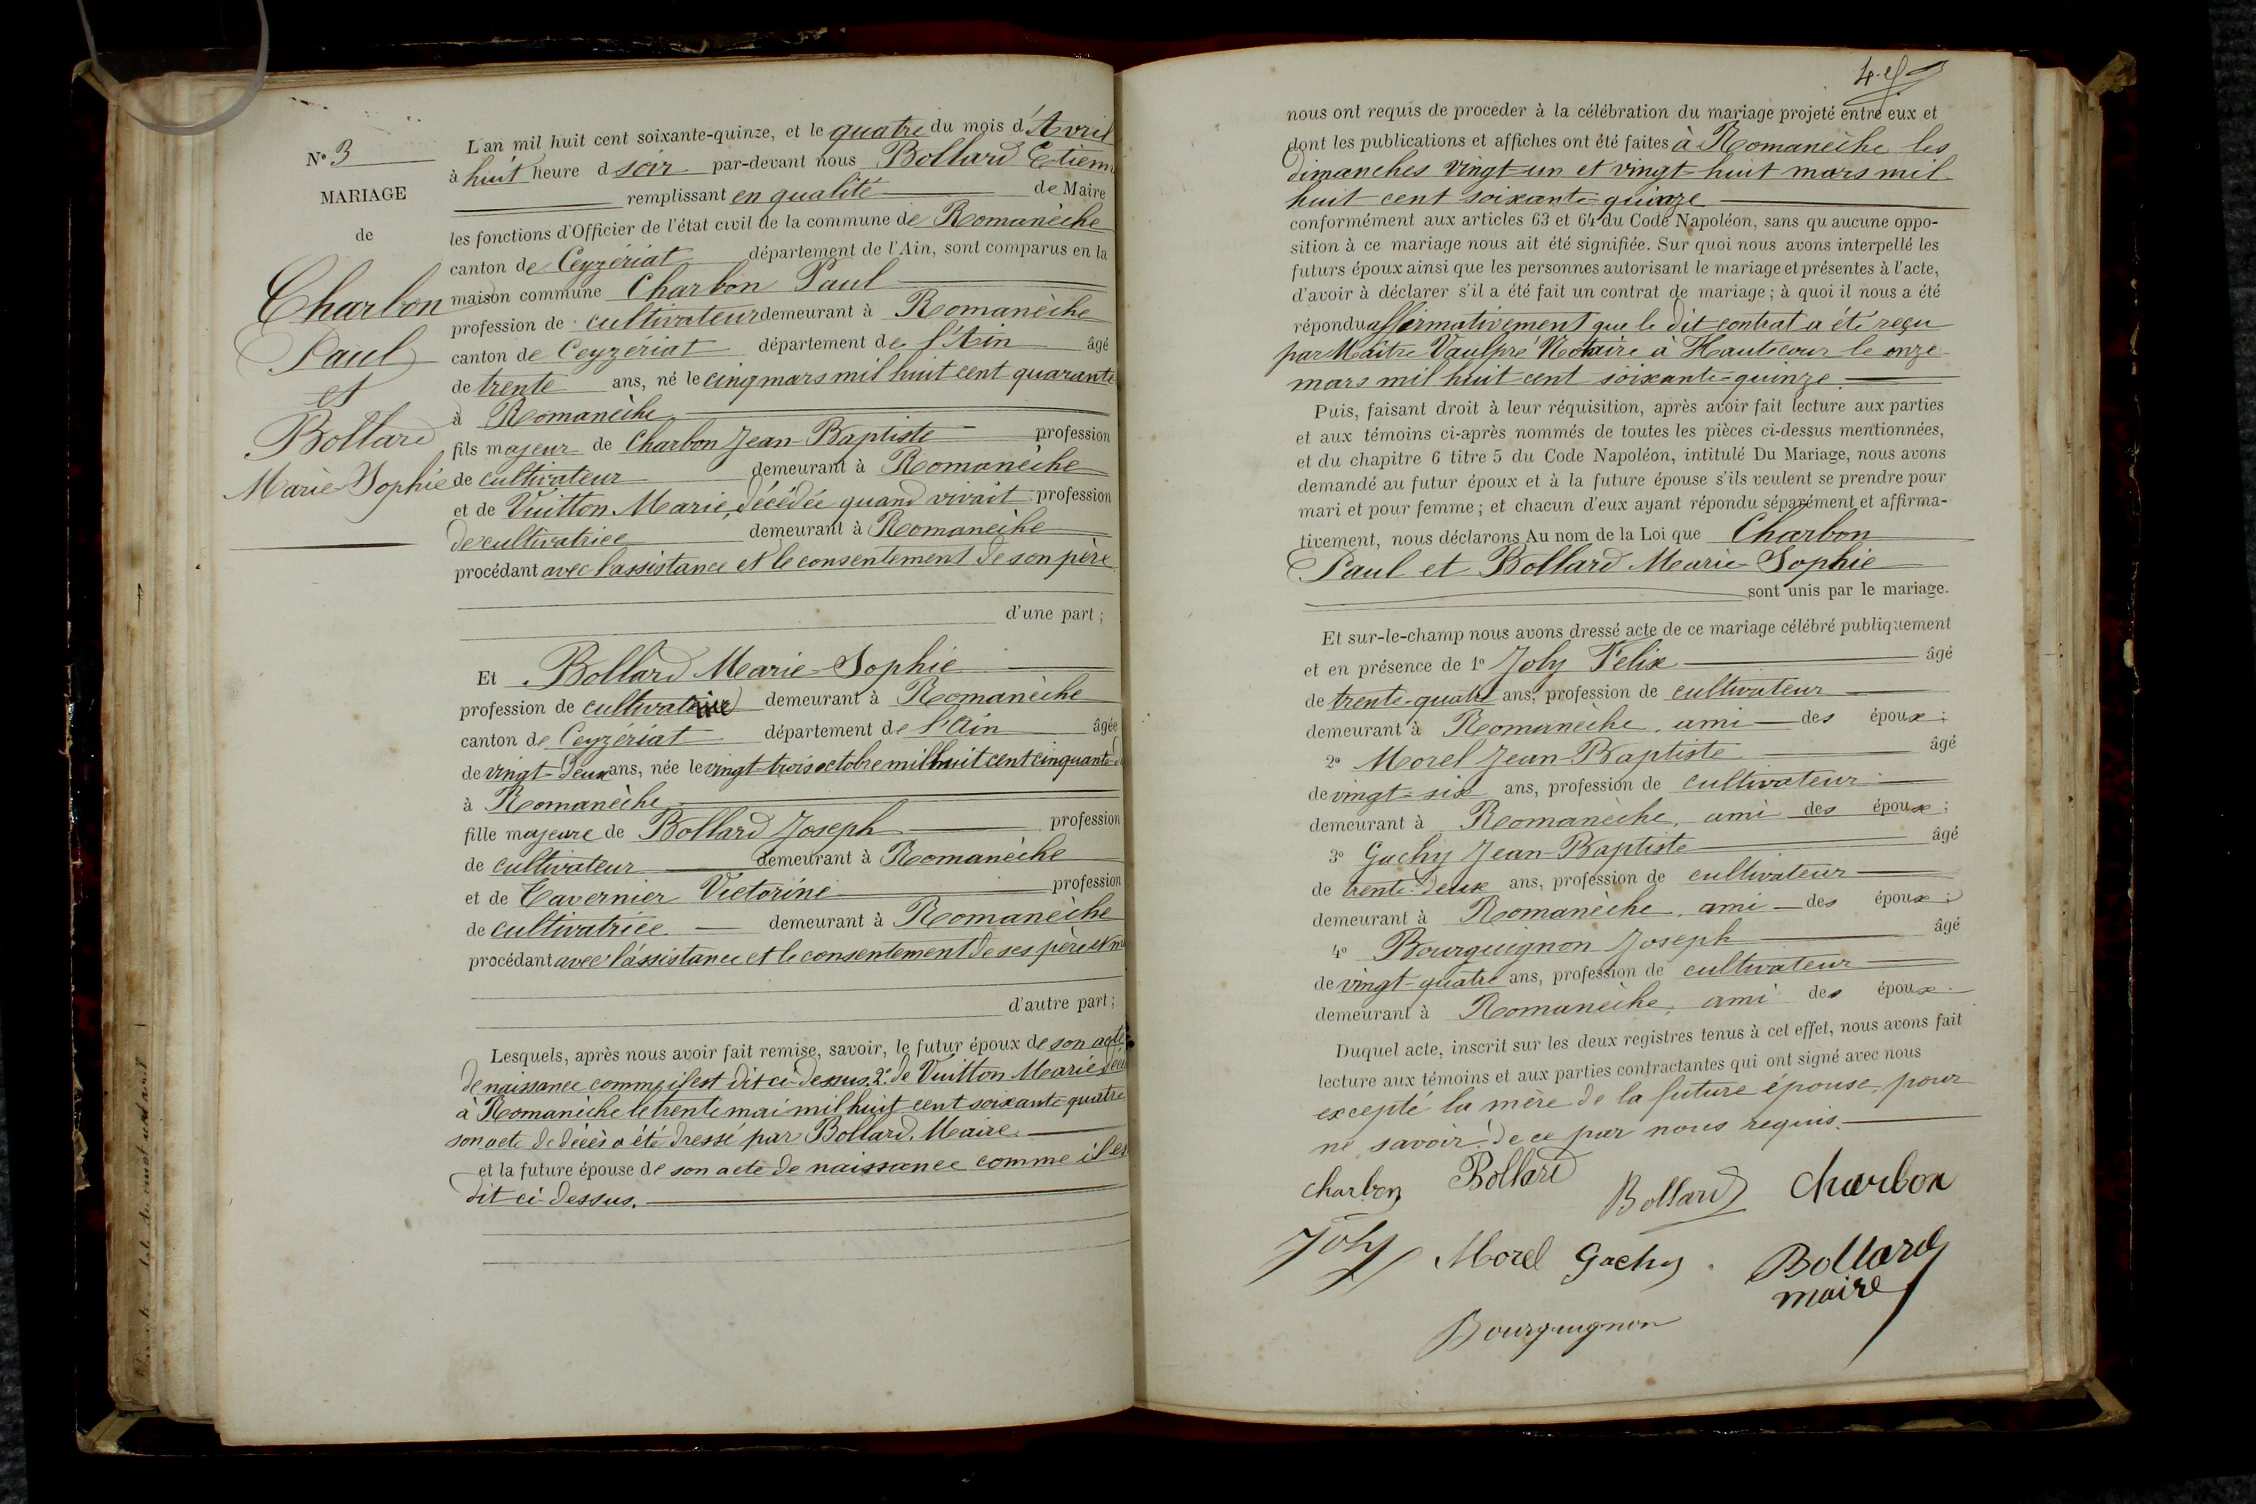 N° 3
MARIAGE
de
Charbon
Paul
et
Bollard
Marie-Sophie
L'an mil huit cent soixante-quinze, et le quatre du mois d'Avril
à huit heure d soir par-devant nous Bollard Etienn
remplissant en qualité de Maire
les fonctions d'Officier de l'état civil de la commune de Romanèche
canton de Ceyzériat département de l'Ain, sont comparus en la
maison commune Charbon Paul
profession de cultivateur demeurant à Romanèche
canton de Ceyzériat département de l'Ain âgé
de trente ans, né le cinq mars mil huit cent quarante
à Romanèche
fils majeur de Charbon Jean-Baptiste profession
de cultivateur demeurant à Romanèche
et de Vuitton Marie, décédée quand vivait profession
de cultivatrice demeurant à Romanèche
procédant avec l'assistance et le consentement de son père
d'une part ;
Et Bollard Marie-Sophie
profession de cultivatrice demeurant à Romanèche
canton de Ceyzériat département de l'Ain âgée
de vingt-deux ans, née le vingt-trois octobre mil huit cent cinquante-d
à Romanèche
fille majeure de Bollard Joseph profession
de cultivateur demeurant à Romanèche
et de Tavernier Victorine profession
de cultivatrice demeurant à Romanèche
procédant avec l'assistance et le consentement de ses père et m
d'autre part ;
Lesquels, après nous avoir fait remise, savoir, le futur époux de son acte
de naissance comme il est dit ci-dessus. 2° de Vuitton Marie
à Romanèche le trente mai mil huit cent soixante-quatre
son acte de décès a été dressé par Bollard, Maire.
et la future épouse de son acte de naissance comme il es
dit ci-dessus.
nous ont requis de procéder à la célébration du mariage projeté entre eux et
dont les publications et affiches ont été faites à Romanèche les
dimanches vingt-un et vingt-huit mars mil
huit cent soixante-quinze
conformément aux articles 63 et 64 du Code Napoléon, sans qu'aucune oppo-
sition à ce mariage nous ait été signifiée. Sur quoi nous avons interpellé les
futurs époux ainsi que les personnes autorisant le mariage et présentes à l'acte,
d'avoir à déclarer s'il a été fait un contrat de mariage ; à quoi il nous a été
répondu affirmativement que le dit contrat a été reçu
par Maître Vaulpré Notaire à Hautecour le onze
mars mil huit cent soixante-quinze
Puis, faisant droit à leur réquisition, après avoir fait lecture aux parties
et aux témoins ci-après nommés de toutes les pièces ci-dessus mentionnées,
et du chapitre 6 titre 5 du Code Napoléon, intitulé Du Mariage, nous avons
demandé au futur époux et à la future épouse s'ils veulent se prendre pour
mari et pour femme ; et chacun d'eux ayant répondu séparément et affirma-
tivement, nous déclarons Au nom de la Loi que Charbon
Paul et Bollard Marie-Sophie
sont unis par le mariage.
Et sur-le-champ nous avons dressé acte de ce mariage célébré publiquement
et en présence de 1° Joly Félix âgé
de trente-quatre ans, profession de cultivateur
demeurant à Romanèche, ami des époux ;
2° Morel Jean-Baptiste âgé
de vingt-six ans, profession de cultivateur
demeurant à Romanèche, ami des époux ;
3° Gachy Jean-Baptiste âgé
de trente-deux ans, profession de cultivateur
demeurant à Romanèche, ami des époux ;
4° Bourguignon Joseph âgé
de vingt-quatre ans, profession de cultivateur
demeurant à Romanèche, ami des époux.
Duquel acte, inscrit sur les deux registres tenus à cet effet, nous avons fait
lecture aux témoins et aux parties contractantes qui ont signé avec nous
excepté la mère de la future épouse, pour
ne savoir de ce par nous requis.
charbon Bollard Bollard charbon
Joly Morel Gachy Bollard
maire
Bourguignon